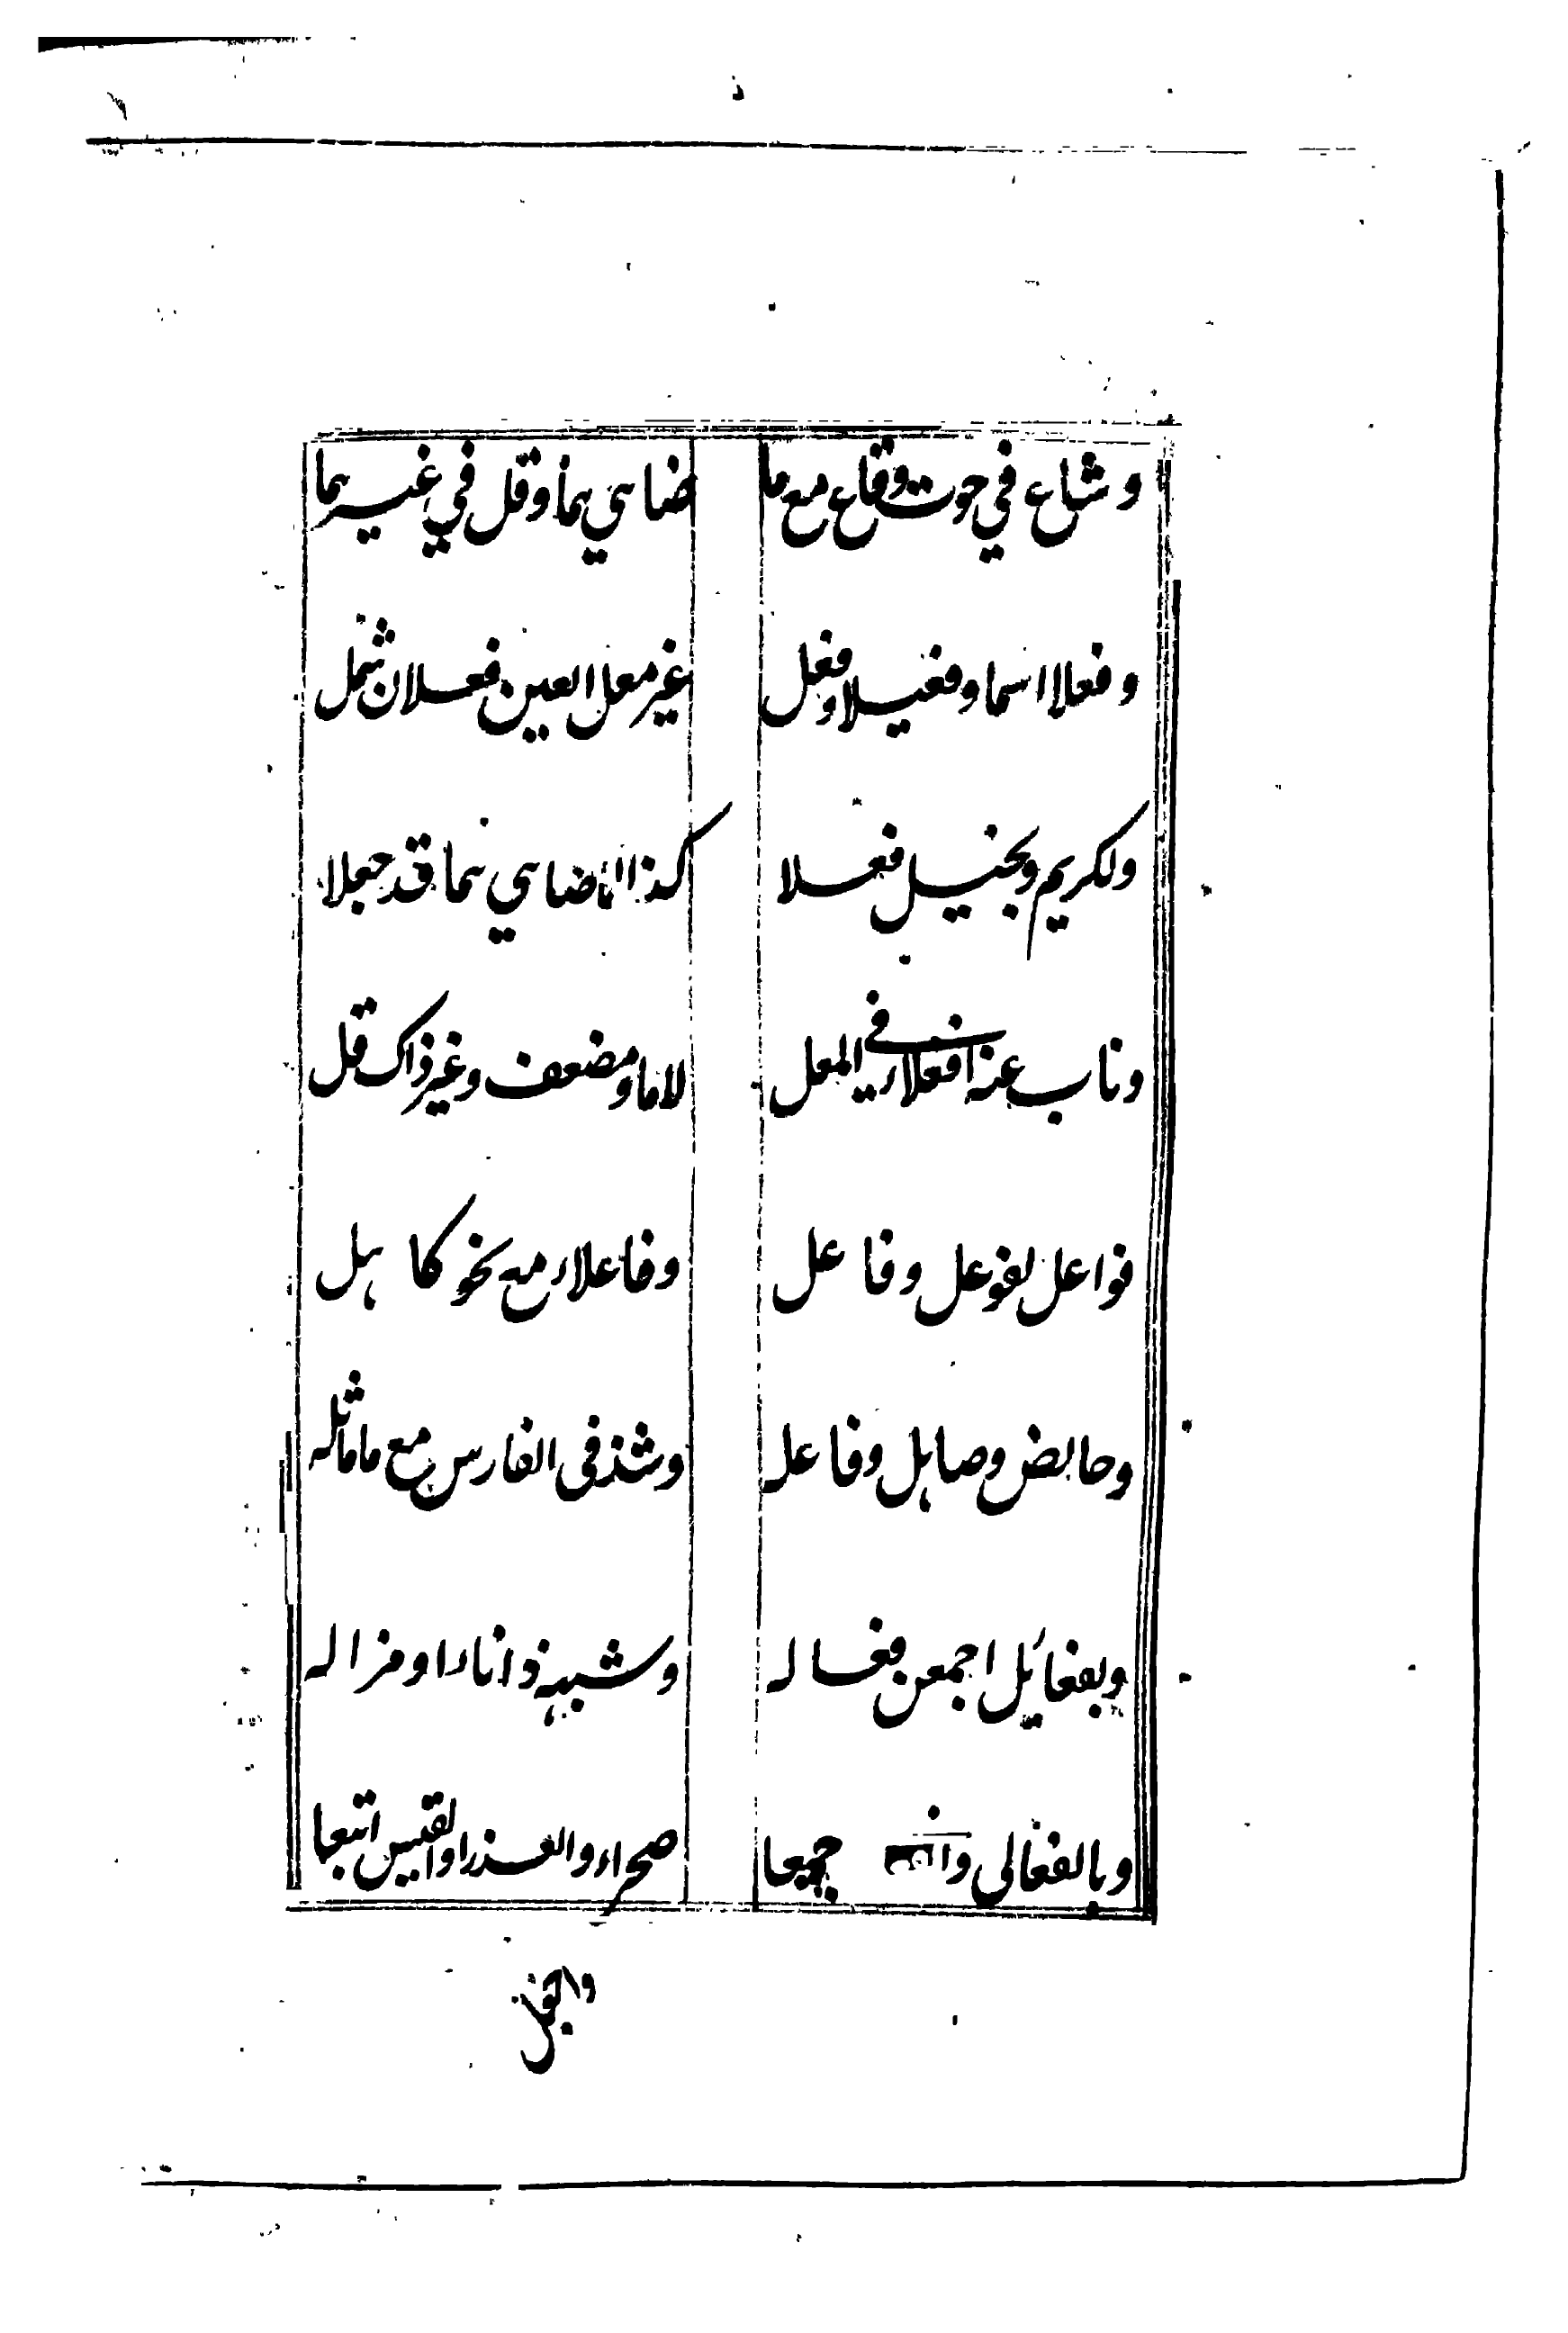 وشاع في حوت وقاع مع ما ضاهي هما وقل في غيرهما
وفعلا اسما وفعيلا وفعل غير معل العين فعلان شمل
ولكريم وبخيل فعلا كذا لما ضاهي هما قد جعلا
وناب عنه افعلاء في المعل لاما ومضعف وغير ذاك قل
فواعل لفوعل وفاعل وفاعلاء مع نحو كاهل
وحايض وصاهل وفاعله وشذ في الفارس مع ما ماثله
وبفعائل اجمعن فعاله وشبهه ذا تاء او مزاله
وبالفعالي و جمعا صحراء والعذراء والقيس اتبعا
واجعل